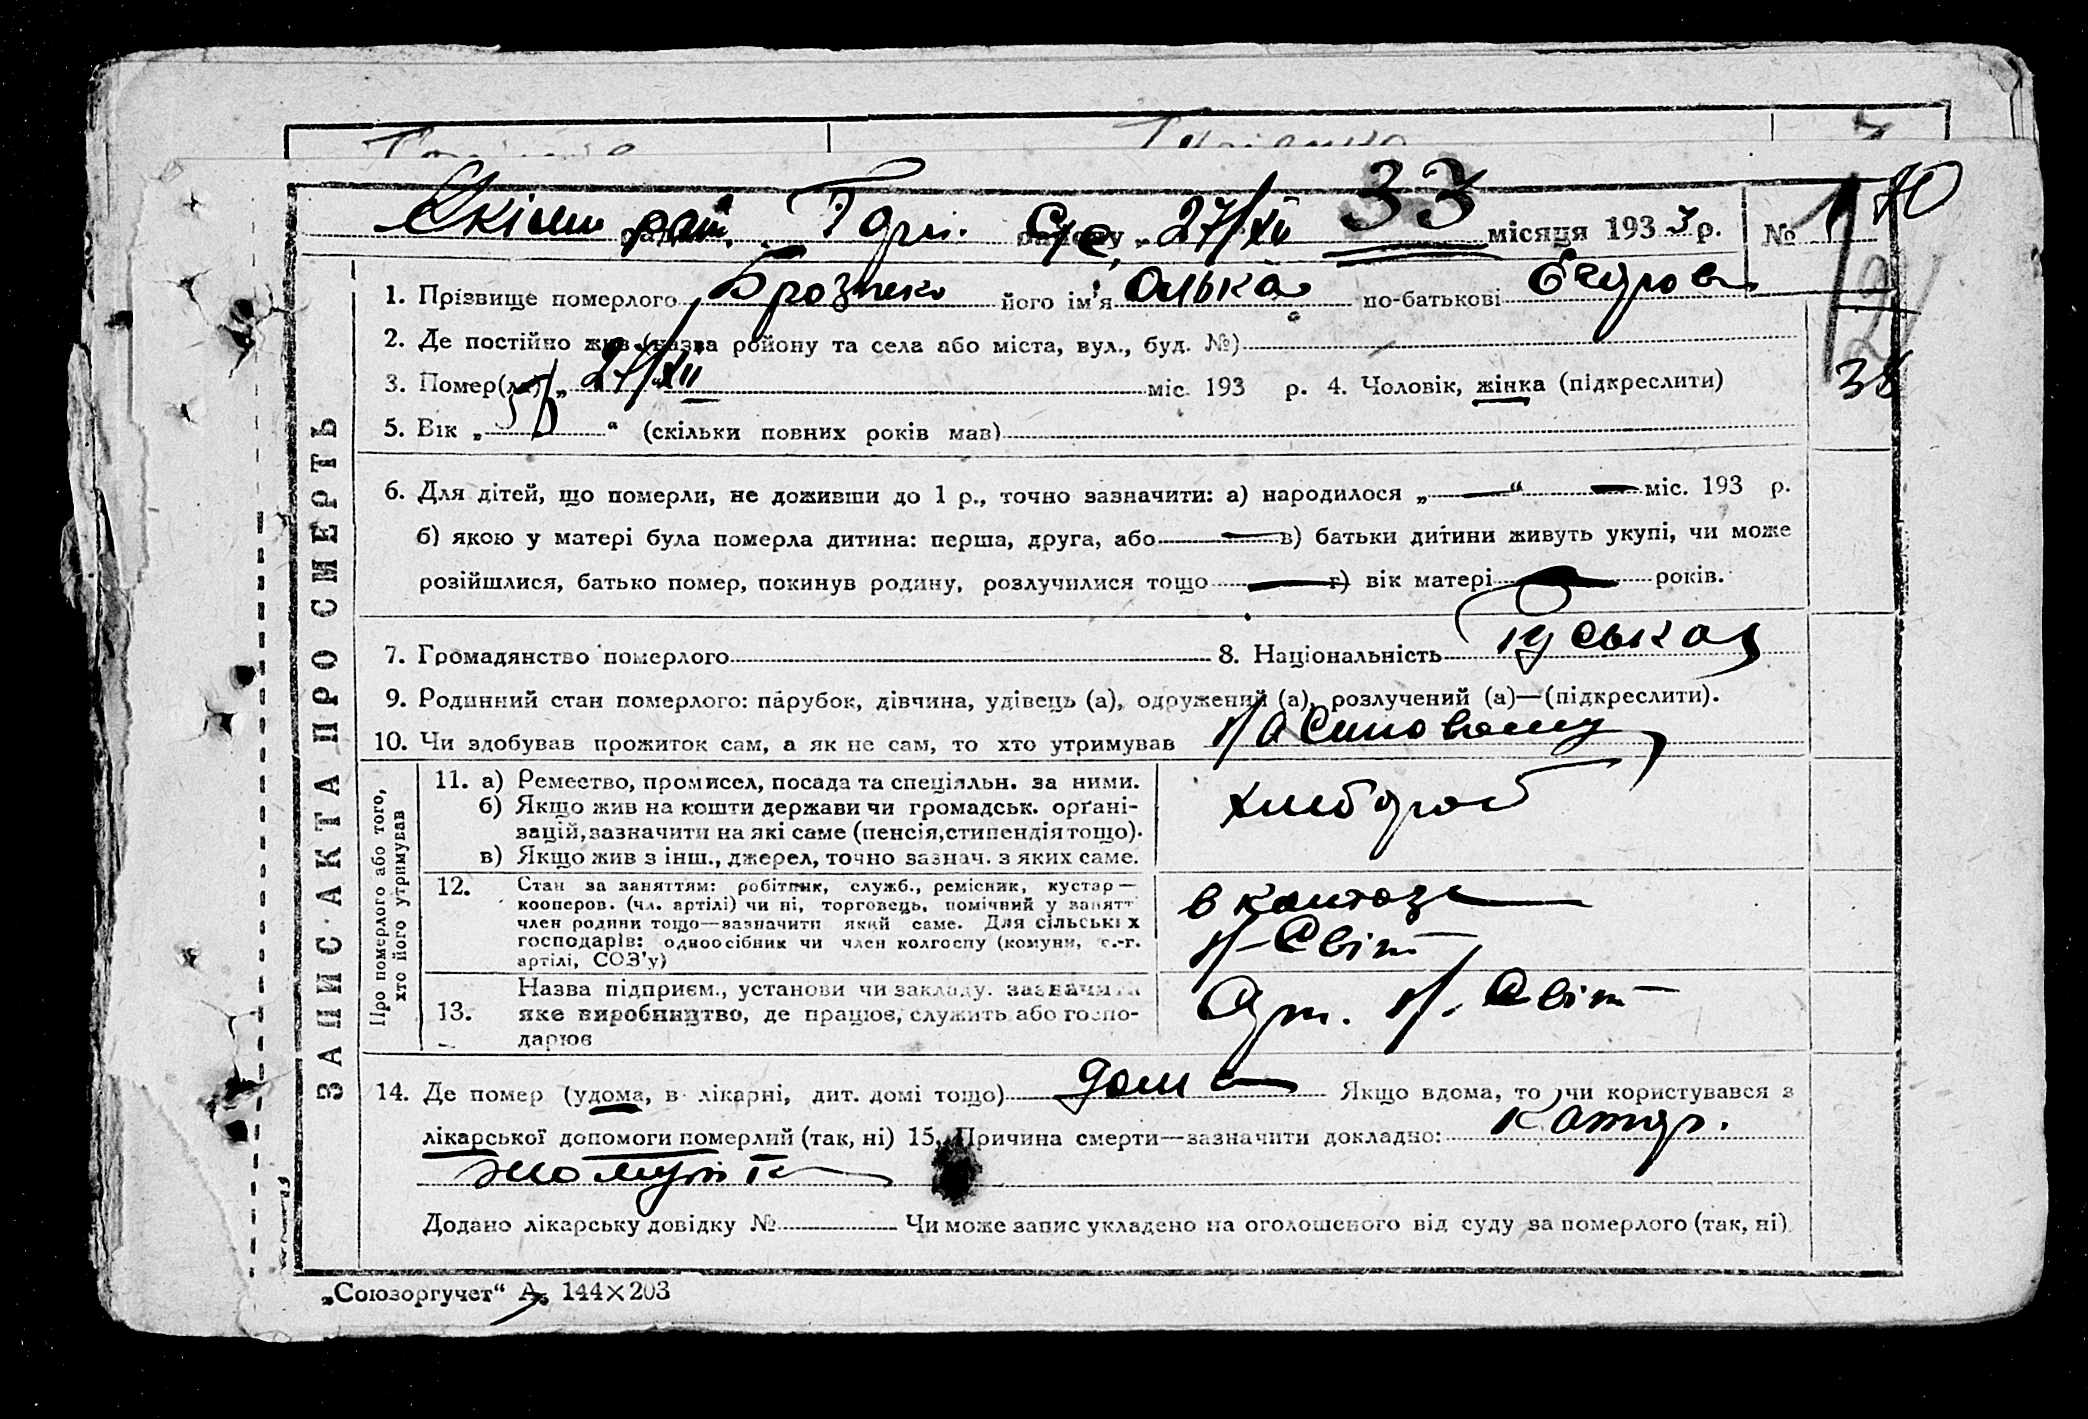 33
рай. Горл. С/С, 27/XII місяця 1933 р. № 1
ЗАПИС АКТА ПРО СМЕРТЬ
1. Прізвище померлого його ім'я Олька по-батькові Єгоров
2. Де постійно жив (назва району та села або міста, вул., буд. №)
38
3. Помер(ла) „ 27/XII міс. 193 р. 4. Чоловік, жінка (підкреслити)
5. Вік „ “ (скільки повних років мав)
6. Для дітей, що померли, не доживши до 1 р., точно зазначити: а) народилося „ — “ — міс. 193 р.
б) якою у матері була померла дитина: перша, друга, або — в) батьки дитини живуть укупі, чи може
розійшлися, батько помер, покинув родину, розлучилися тощо — г) вік матері — років.
7. Громадянство померлого 8. Національність Руська
9. Родинний стан померлого: парубок, дівчина, удівець (а), одружений (а), розлучений (а)—(підкреслити).
10. Чи здобував прожиток сам, а як не сам, то хто утримував
Про померлого або того, хто його утримував
11. а) Ремество, промисел, посада та спеціяльн. за ними.
б) Якщо жив на кошти держави чи громадськ. орґані-
зацій, зазначити на які саме (пенсія, стипендія тощо).
в) Якщо жив з інш., джерел, точно зазнач. з яких саме.
хлибороб
12. Стан за заняттям: робітник, служб., ремісник, кустар—
кооперов. (чл. артілі) чи ні, торговець, помічний у занятт
член родини тощо—зазначити який саме. Для сільських
господарів: одноосібник чи член колгоспу (комуни, с.-г.
артілі, СОЗ'у)
в колгозе
Н-Світ
13. Назва підприєм., установи чи закладу. зазначити
яке виробництво, де працює, служить або госпо-
дарює
Арт. Н. Світ
14. Де помер (удома, в лікарні, дит. домі тощо) дома Якщо вдома, то чи користувався з
лікарської допомоги померлий (так, ні) 15. Причина смерти—зазначити докладно: Катар.
Додано лікарську довідку № Чи може запис укладено на оголошеного від суду за померлого (так, ні)
„Союзоргучет“ А₅ 144×203